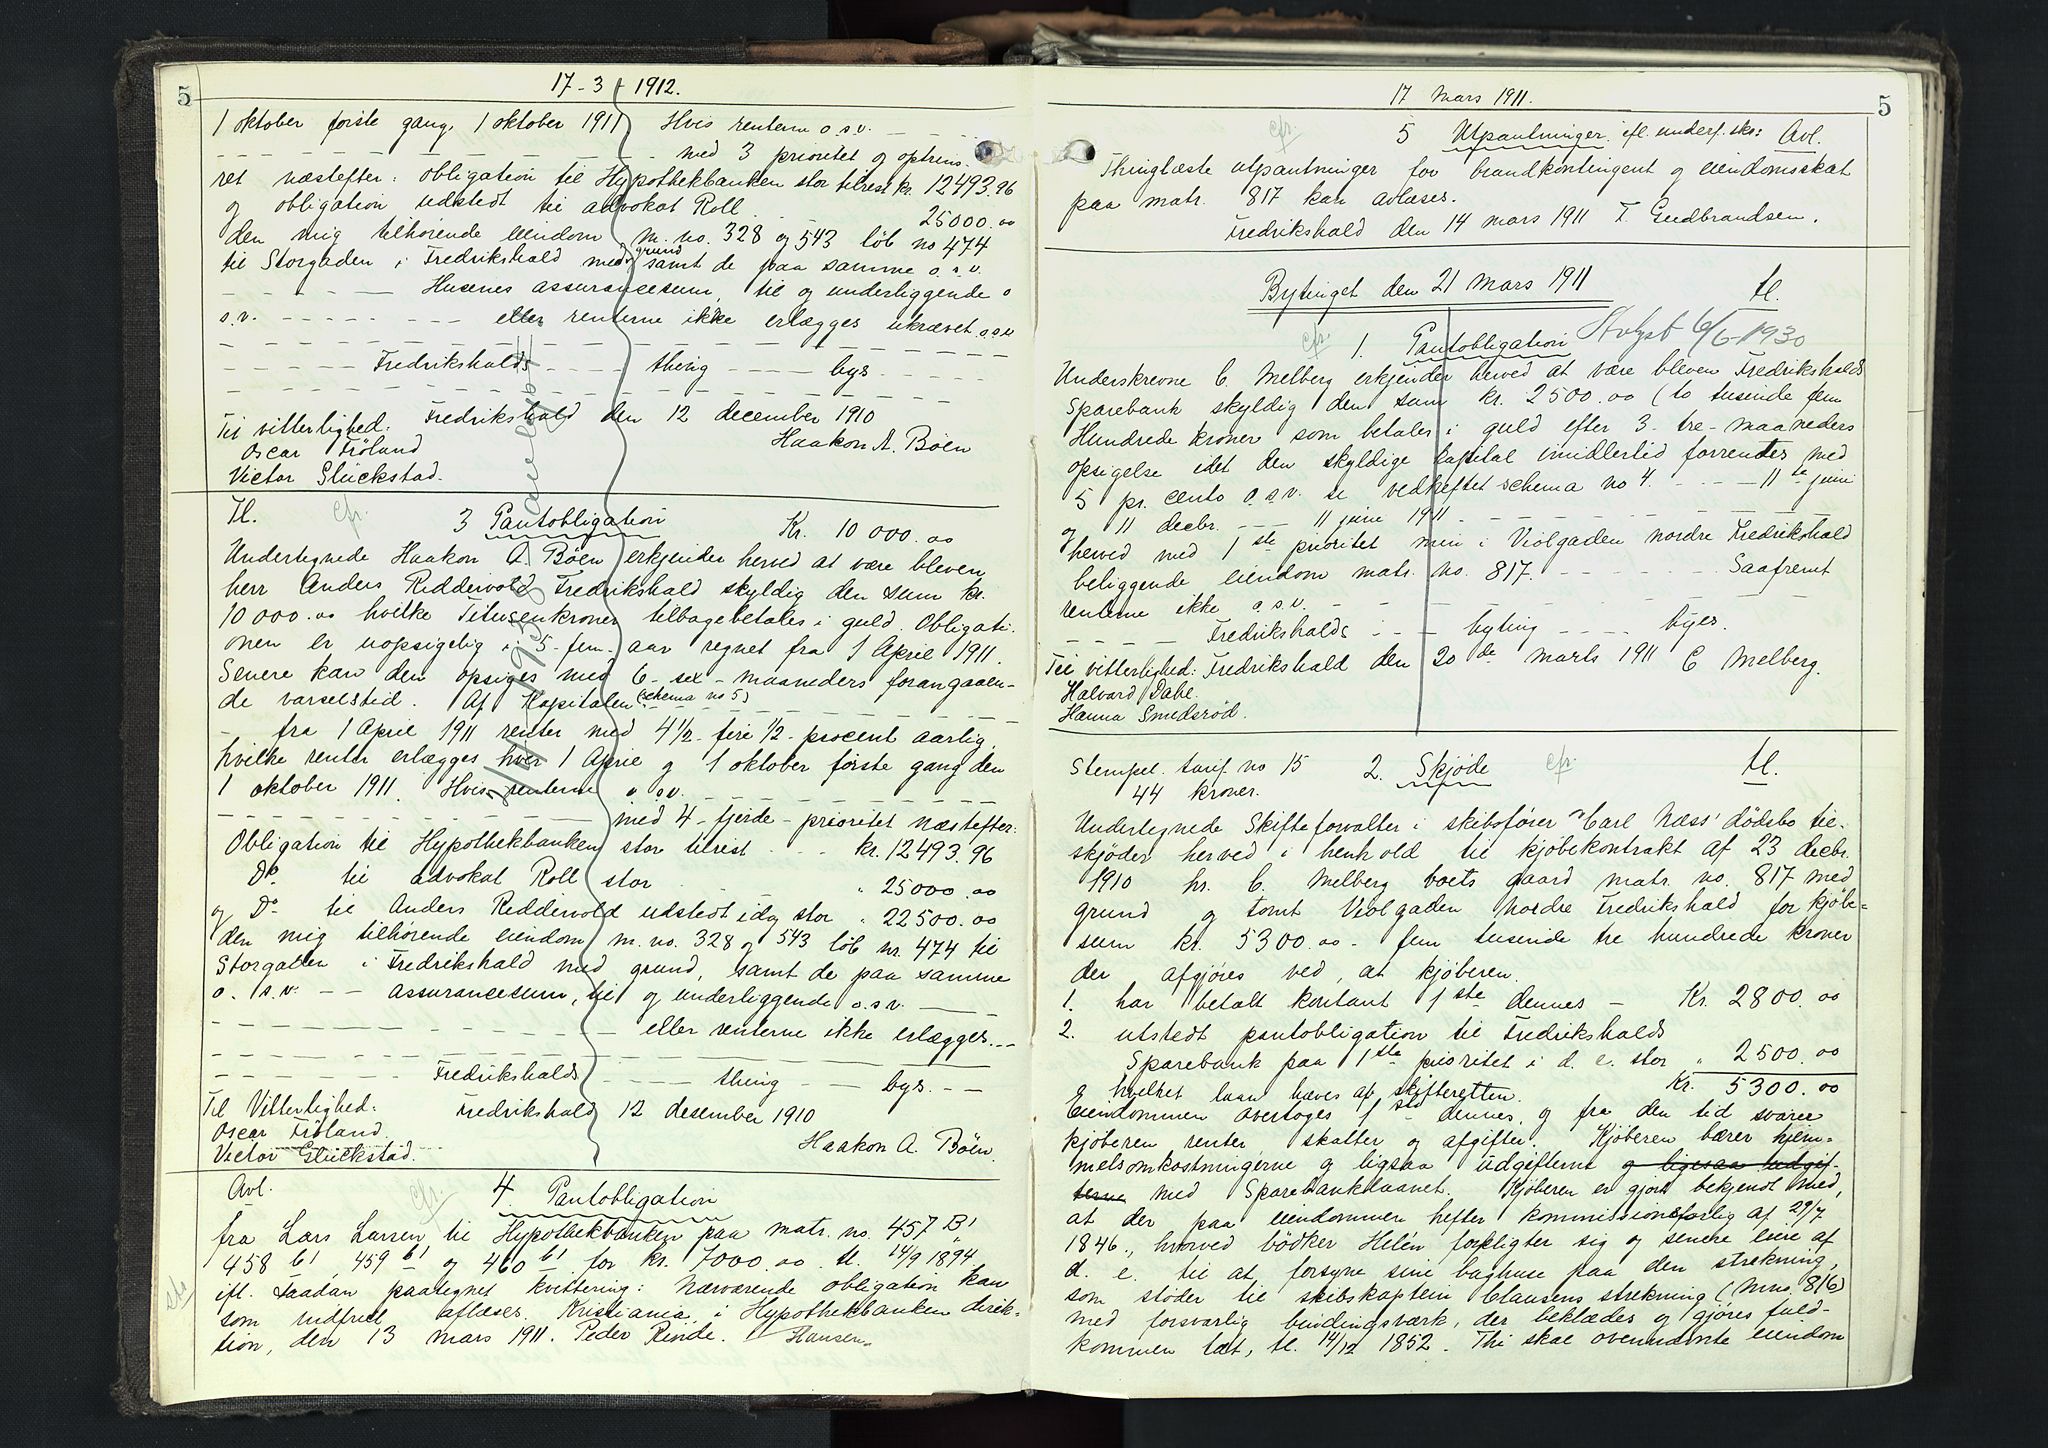 5
17-3-1912.
1 oktober første gang, 1 oktober 1911 Hvis renterne o.s.v. - -
- - - - - - - - - - med 3 prioritet og optrins-
ret næstefter: obligation til Hypothekbanken stor tilrest kr. 12493.96
og obligation udstedt til advokat Roll 25000.00
den mig tilhørende eiendom m. no. 328 og 543 løb no 474
til Storgaden i Fredrikshald med grund samt de paa samme o.s.v.
- - - - - Husenes assurancesum, til og underliggende o
s.v. - - - - - - - eller renterne ikke erlægges ukrævet o.s.v.
- - - - - Fredrikshalds - - - - thing - - - - bys - - - -
Til vitterlighed: Fredrikshald den 12 december 1910
Oscar Fröland Haakon A. Böen
Victor Glückstad.
Tl. cfr. 3 Pantobligation Kr. 10 000.00
Undertegnede Haakon A. Böen erkjender herved at være bleven
herr Anders Reddervold Fredrikshald skyldig den sum kr.
10 000.00 hvilke Titusen kroner tilbagebetales i guld. Obligati-
onen er uopsigelig i 5-fem-aar regnet fra 1 April 1911.
Senere kan den opsiges med 6-sex-maaneders forangaaen-
de varselstid. Af Kapitalen (schema no 5)
- fra 1 April 1911 renter med 4½-fire ½-procent aarlig,
hvilke renter erlægges hver 1 April og 1 oktober første gang den
1 oktober 1911. Hvis renterne o.s.v. - - - - -
- - - - - - - - - - med 4-fjerde-prioritet næstefter:
Obligation til Hypothekbanken stor tilrest - - - kr. 12493.96
Do. til advokat Roll stor " 25000.00
og Do. til Anders Reddervold udstedt idag stor " 22500.00
den mig tilhørende eiendom m.no. 328 og 543 löb nr. 474 til
Storgaden i Fredrikshald med grund, samt de paa samme
o.s.v. - - assurancesum, til og underliggende o.s.v. - -
- - - - - - - - - - eller renterne ikke erlægges. - -
- - - - - Fredrikshalds - - - - thing - - - bys. - -
Til Vitterlighed: Fredrikshald 12 desember 1910
Oscar Fröland
Victor Glückstad. Haakon A. Böen.
Avl. cfr. 4 Pantobligation
fra Lars Larsen til Hypothekbanken paa matr. no. 457 B1,
458 b1, 459 b1 og 460 b1 for kr. 7000.00 tl. 14/9 1894
ifl. saadan paategnet kvittering: Nærværende obligation kan
som indfriet aflæses. Kristiania, i Hypothekbankens direk-
tion, den 13 mars 1911. Peder Rinde. / Hansen
5
17 Mars 1911.
cfr. 5 Utpantninger ifl. underf. skr: Avl.
Thinglæste utpantninger for brandkontingent og eiendomsskat
paa matr. 817 kan avlæses.
Fredrikshald den 14 mars 1911 F. Gudbrandsen.
Bytinget den 21 Mars 1911 tl.
cfr. 1. Pantobligation Avlyst 6/6-1930
Underskrevne C. Melberg erkjender herved at være bleven Fredrikshalds
Sparebank skyldig den sum kr. 2500.00 (to tusende fem
Hundrede kroner som betales i guld efter 3-tre-maaneders
opsigelse idet den skyldige kapital imidlertid forrentes med
5 pr. cento o.s.v. se vedheftet schema no 4. - - - - 11te juni
og 11 decbr. - - - 11 juni 1911 - - - - - -
herved med 1ste prioritet min i Violgaden nordre Fredrikshald
beliggende eiendom matr. no. 817. - - - - - - Saafremt
renterne ikke o.s.v. - - - - -
- - - - Fredrikshalds - - - byting - - - - byes.
Til vitterlighed: Fredrikshald den 20de marts 1911 C Melberg.
Halvard Dahl.
Hanna Smedsrød.
Stempel. tarif. no 15 2. Skjøde cfr. tl.
44 kroner.
Undertegnede Skifteforvalter i skibsfører Carl Næss' dødsbo til-
skjøder herved i henhold til kjøbekontrakt af 23 decbr.
1910 hr. C. Melberg boets gaard matr. no. 817 med
grund og tomt Violgaden Nordre Fredrikshald for kjøbe-
sum kr. 5300.00 - fem tusende tre hundrede kroner
der afgjøres ved, at kjøberen.
1. har betalt kontant 1ste dennes - Kr. 2800.00
2. utstedt pantobligation til Fredrikshalds
Sparebank paa 1ste prioritet i d. e. stor " 2500.00
hvilket laan hæves af skifteretten. Kr. 5300.00
Eiendommen overtoges 1ste dennes, og fra den tid svarer
kjøberen renter skatter og afgifter. Kjøberen bærer hjem-
melsomkostningerne og ligesaa udgifterne og ligesaa udgif-
terne med Sparebanklaanet. Kjøberen er gjort bekjendt med,
at der paa eiendommen hefter kommissionsforlig af 29/7
1846., hvorved bødker Helén forpligter sig og senere eiere af
d. e. til at forsyne sine baghuse paa den strekning,
som støder til skibskaptein Clausens strekning (Mno. 816)
med forsvarlig bindingsværk, der beklædes og gjøres fuld-
kommen tæt, tl. 14/12 1852. Thi skal ovennævnte eiendom